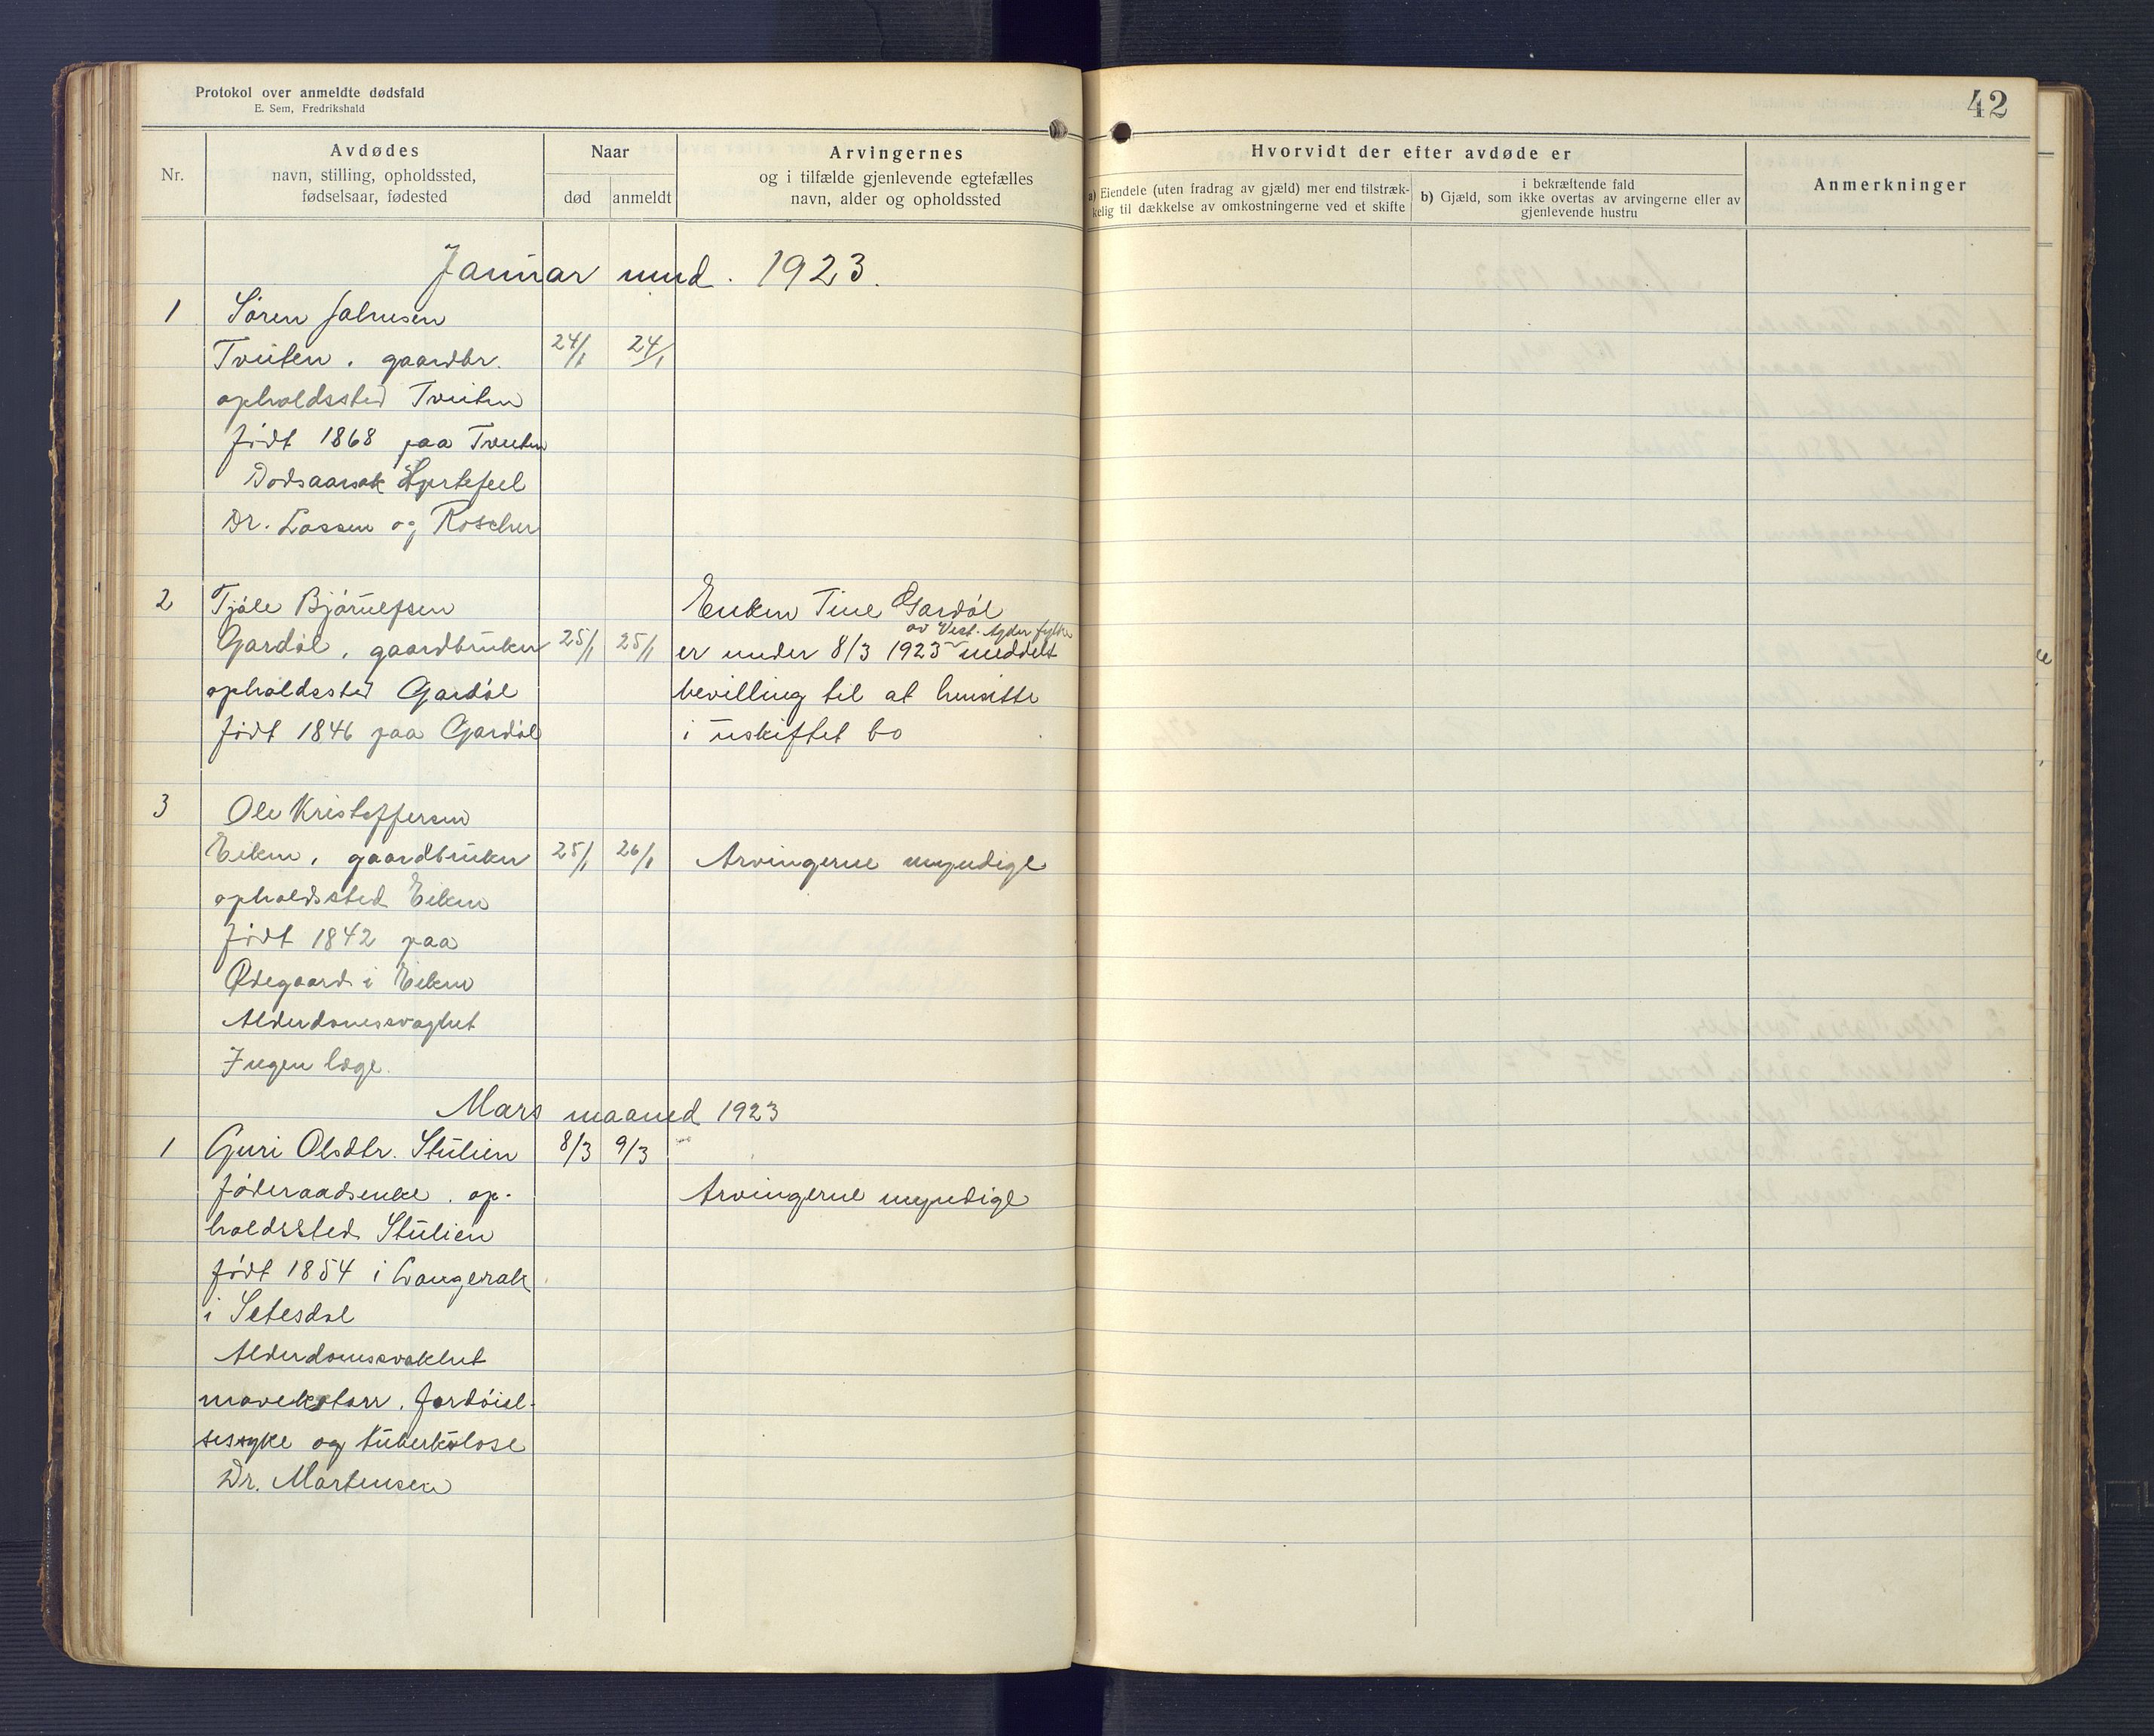 Protokol over anmeldte dødsfald
E. Sem, Fredrikshald
42
Nr.
Avdødes
navn, stilling, opholdssted,
fødselsaar, fødested
Naar
død
anmeldt
Arvingernes
og i tilfælde gjenlevende egtefælles
navn, alder og opholdssted
Hvorvidt der efter avdøde er
a) Eiendele (uten fradrag av gjæld) mer end tilstræk-
kelig til dækkelse av omkostningerne ved et skifte
i bekræftende fald
b) Gjæld, som ikke overtas av arvingerne eller av
gjenlevende hustru
Anmerkninger
Januar mnd. 1923.
1 Søren Salvesen
Tveiten, gaardbr. 24/1 24/1
opholdssted Tveiten
født 1868 paa Tveiten
Dødsaarsak Hjertefeil
Dr. Lassen og Roscher
2 Tjøle Bjørulfsen Enken Tine Gardøl
Gardøl, gaardbruker 25/1 25/1 er under 8/3 1923 av Vest-Agder fylke meddelt
opholdssted Gardøl bevilling til at hensitte
født 1846 paa Gardøl i uskiftet bo
3 Ole Kristoffersen
Eiken, gaardbruker 25/1 26/1 Arvingerne myndige
opholdssted Eiken
født 1842 paa
Ødegaard i Eiken
Alderdomssvaghet
Ingen læge.
Mars maaned 1923
1 Guri Olsdtr. Stulien 8/3 9/3
føderaadsenke. op- Arvingerne myndige
holdssted Stulien
født 1854 i Langerak
i Setesdal
Alderdomssvakhet
mavekatarr. Fordøiel-
sessyke og tuberkulose
Dr. Martensen